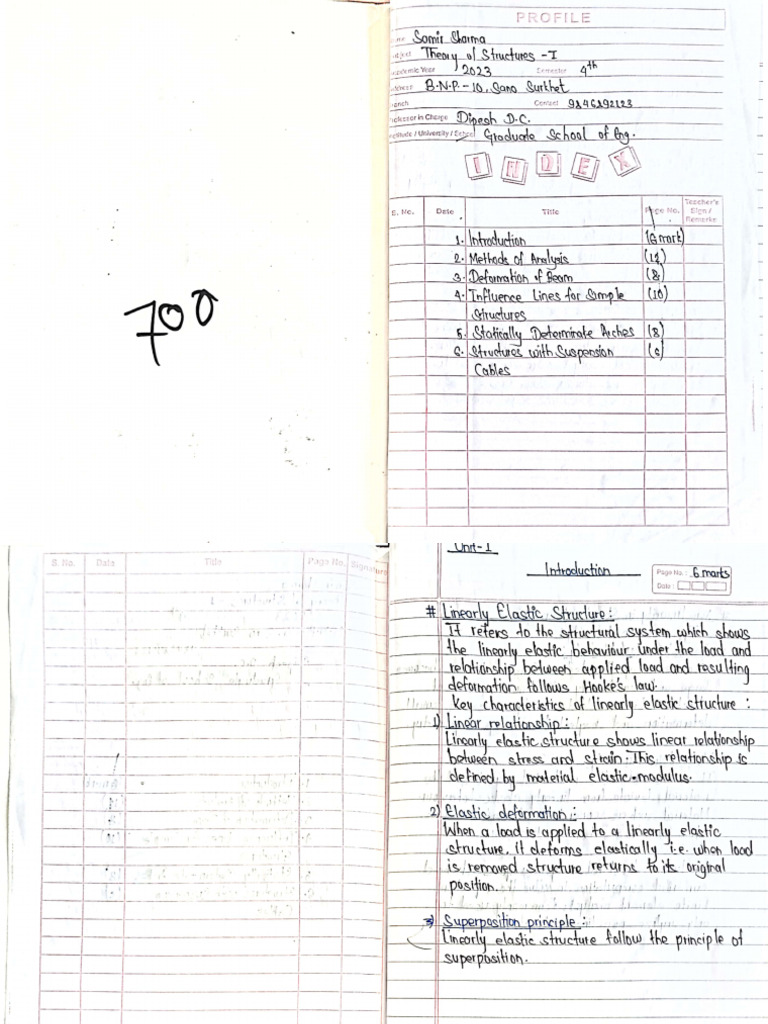 700
PROFILE
Samir Sharma
Theory of Structures - I
Academic Year 2023 Semester 4th
B.N.P. - 10, Sano Surkhet
Contact 9846892123
Professor in Charge Dipesh D.C.
Institute / University / School Graduate School of Eng.
INDEX
S. No. Date Title Page No. Teacher's Sign / Remarks
1. Introduction (6 mark)
2. Methods of Analysis
3. Deformation of Beam (8)
4. Influence Lines for Simple (10)
Structures
5. Statically Determinate Arches (8)
6. Structures with Suspension (6)
Cables
S. No. Date Title Page No. Signature
Unit-1
Introduction
Page No.: 6 marks
Date:
# Linearly Elastic Structure:
It refers to the structural system which shows
the linearly elastic behaviour under the load and
relationship between applied load and resulting
deformation follows Hooke's law.
Key characteristics of linearly elastic structure :
1) Linear relationship :
Linearly elastic structure shows linear relationship
between stress and strain. This relationship is
defined by material elastic-modulus.
2) Elastic deformation :
When a load is applied to a linearly elastic
structure, it deforms elastically i.e. when load
is removed structure returns to its original
position.
3) Superposition principle :
Linearly elastic structure follow the principle of
superposition.